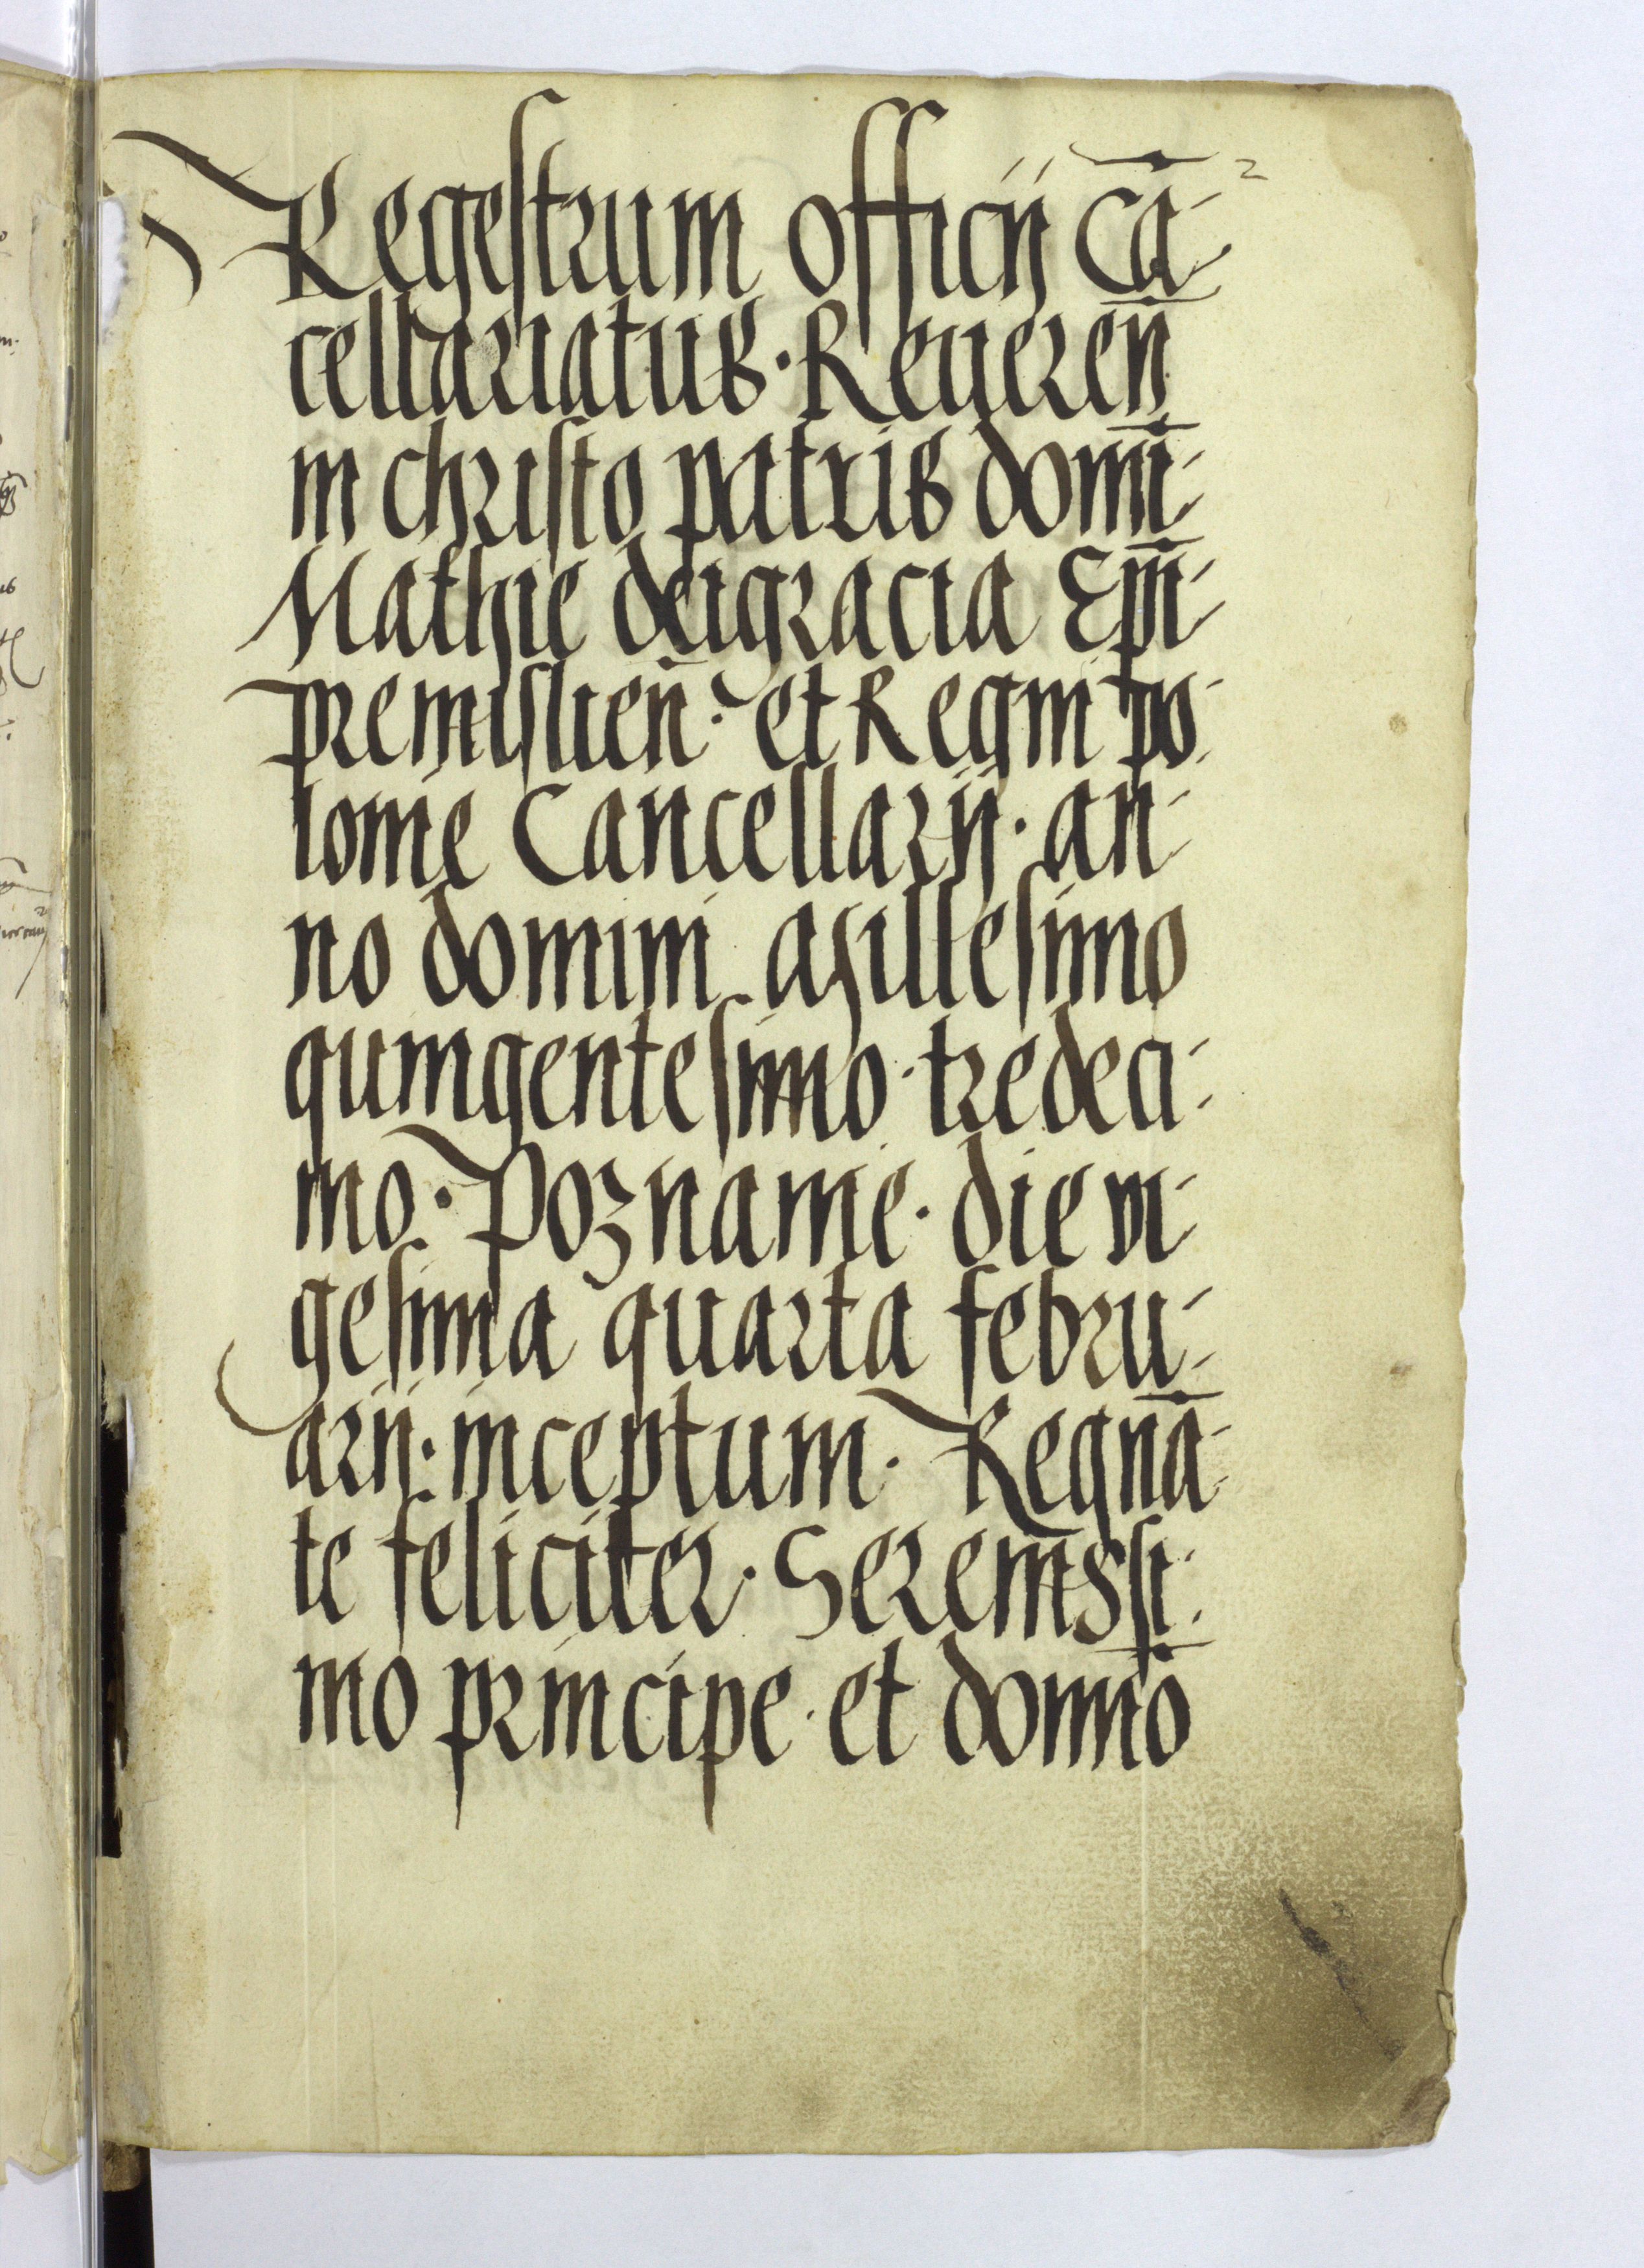 Regestrum officij Cā- 2
cellariatus · Reueren̄
in christo patris domi̅-
Mathie dei gracia Epi̅-
premislien̄ · et Regni po-
lonie Cancellarij · an-
no domini Millesimo
quingentesimo · tredeci-
mo · Poznanie · die vi-
gesima quarta febru-
arij · inceptum · Regnā-
te feliciter · Serenissi-
mo principe · et domi̅o